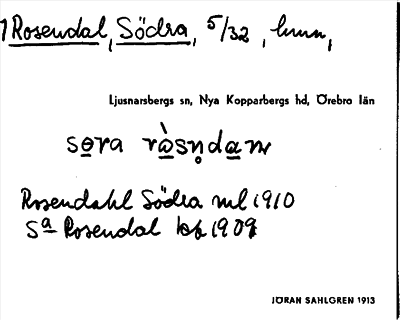 1 Rosendal, Södra, 5/32, hmn,
Ljusnarsbergs sn, Nya Kopparbergs hd, Örebro län
Rosendahl Södra ml 1910
Sa Rosendal bf 1909
JÖRAN SAHLGREN 1913